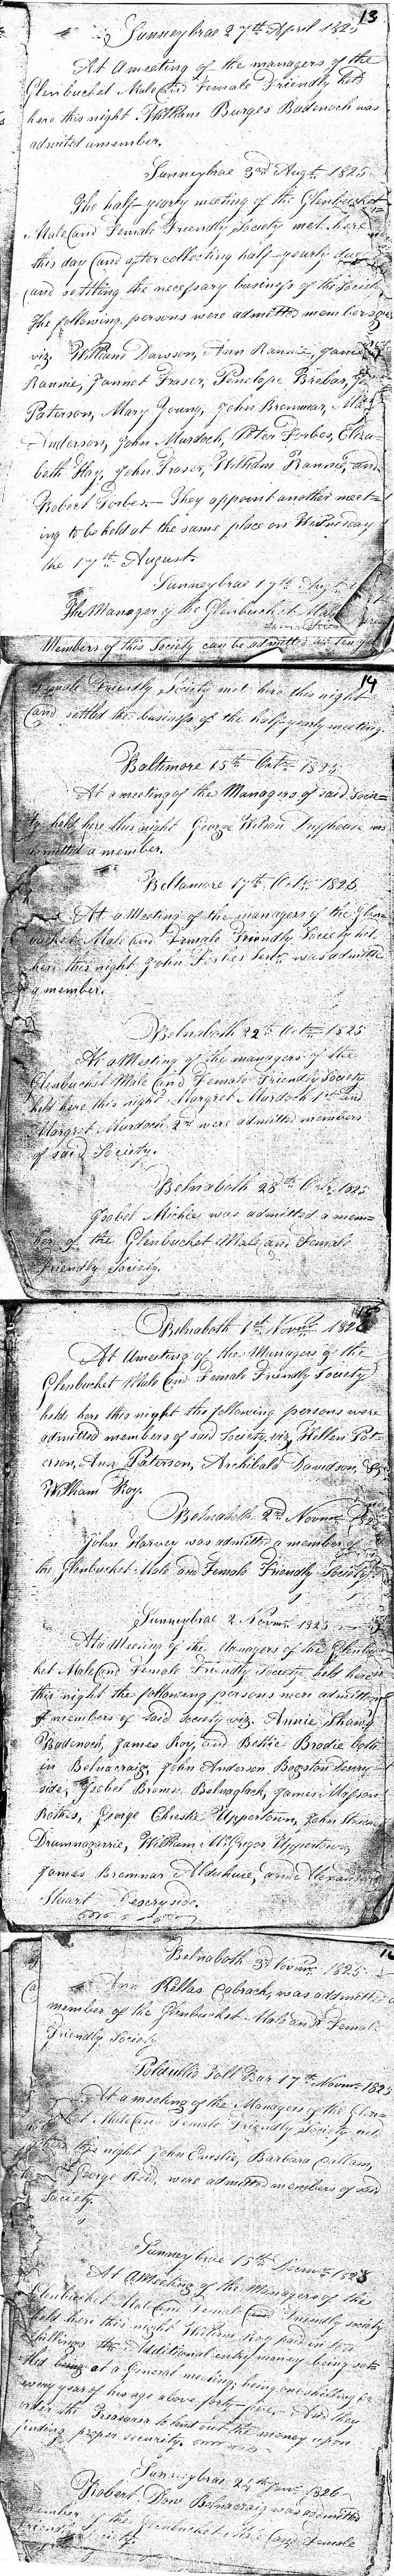 13
Sunneybrae 27th April 1825
At a meeting of the managers of the
Glenbucket Male and Female Friendly held
here this night William Burges Badenoch was
admited a member.
Sunneybrae 3rd Augt. 1825
The half-yearly meeting of the Glenbucket
Male and Female Friendly Society met here
this day and after collecting half-yearly dues
and settling the necessary business of the Society
The following persons were admitted members
viz. William Dawson, Ann Rannie, James
Rannie, Jannet Fraser, Penelope Brebar,
Paterson, Mary Young, John Bremmar,
Anderson, John Murdoch, Peter Forbes, Eliza=
beth Hay, John Fraser, William Rannie, and
Robert Forbes.— They appoint another meet=
ing to be held at the same place on Wednesday
the 17th August.
Sunneybrae 17th Augt
The Manager of the Glenbucket Male
Members of this Society can be admitted
14
Female Friendly Society met here this night
and settled the business of the half-yearly meeting.
Baltimore 15th Octr 1825
At a meeting of the Managers of said Socie=
ty held here this night George Wilson was
admitted a member.
Beltamore 17th Octr 1825
At a Meeting of the managers of the Glen
bucket Male and Female Friendly Society held
here this night John Forbes Senr. was admitted
a member.
Belnaboth 22nd Octr 1825
At a Meeting of the managers of the
Glenbucket Male and Female Friendly Society
held here this night Margret Murdoch 1st and
Margret Murdoch 2nd were admitted members
of said Society.
Belnaboth 28th Octr. 1825
Isobel Michie was admitted a mem=
ber of the Glenbucket Male and Female
Friendly Society.
15
Belnaboth 1st Novmr. 1825
At a meeting of the Managers of the
Glenbucket Male and Female Friendly Society
held here this night the following persons were
admitted members of said Society, viz, Willem Pat=
erson, Ann Paterson, Archibald Davidson, &
William Roy.
Belnaboth 2nd Novmr
John Harvey was admitted a member of
the Glenbucket Male and Female Friendly Society.
Sunneybrae 2 Novmr. 1825
At a Meeting of the Managers of the Glenbu
ket Male and Female Friendly Society held here
this night the following persons were admitted
members of said Society viz. Annie Shaw
Badenoch, James Roy, and Bettie Brodie both
in Belnacraig, John Anderson Bogston Deskry
side, Isobel Brown Belnaglack, James
Rothes, George Christie Uppertown, John
Drumnagarrie, William McGrigor Uppertown,
James Bremnar Alduhuie, and Alexander
Stuart Descryside.
Belnaboth 3rd Novmr. 1825
Ann Kellas Cabrach, was addmitted a
member of the Glenbucket Male and Female
Friendly Society
Poldullie Toll Bar 17th Novmr 1825
At a meeting of the Managers of the Glen=
bucket Male and Female Friendly Society met
this night John Emslie, Barbara Callam,
George Reid, were admitted members of said
Society.
Sunneybrae 15th Decmr 1825
At a Meeting of the Managers of the
Glenbucket Male and Female Friendly Society
held here this night William Roy paid in
shillings the Additional entry money being set=
tled being at a General meeting; being one shilling for
every year of his age above forty-five. And they
order the Treasurer to lend out the money upon
finding proper security.
Sunneybrae 24th Janr. 1826
Robert Dow Belnacraig was admitted
member of the Glenbucket Male and Female
Friendly Society.